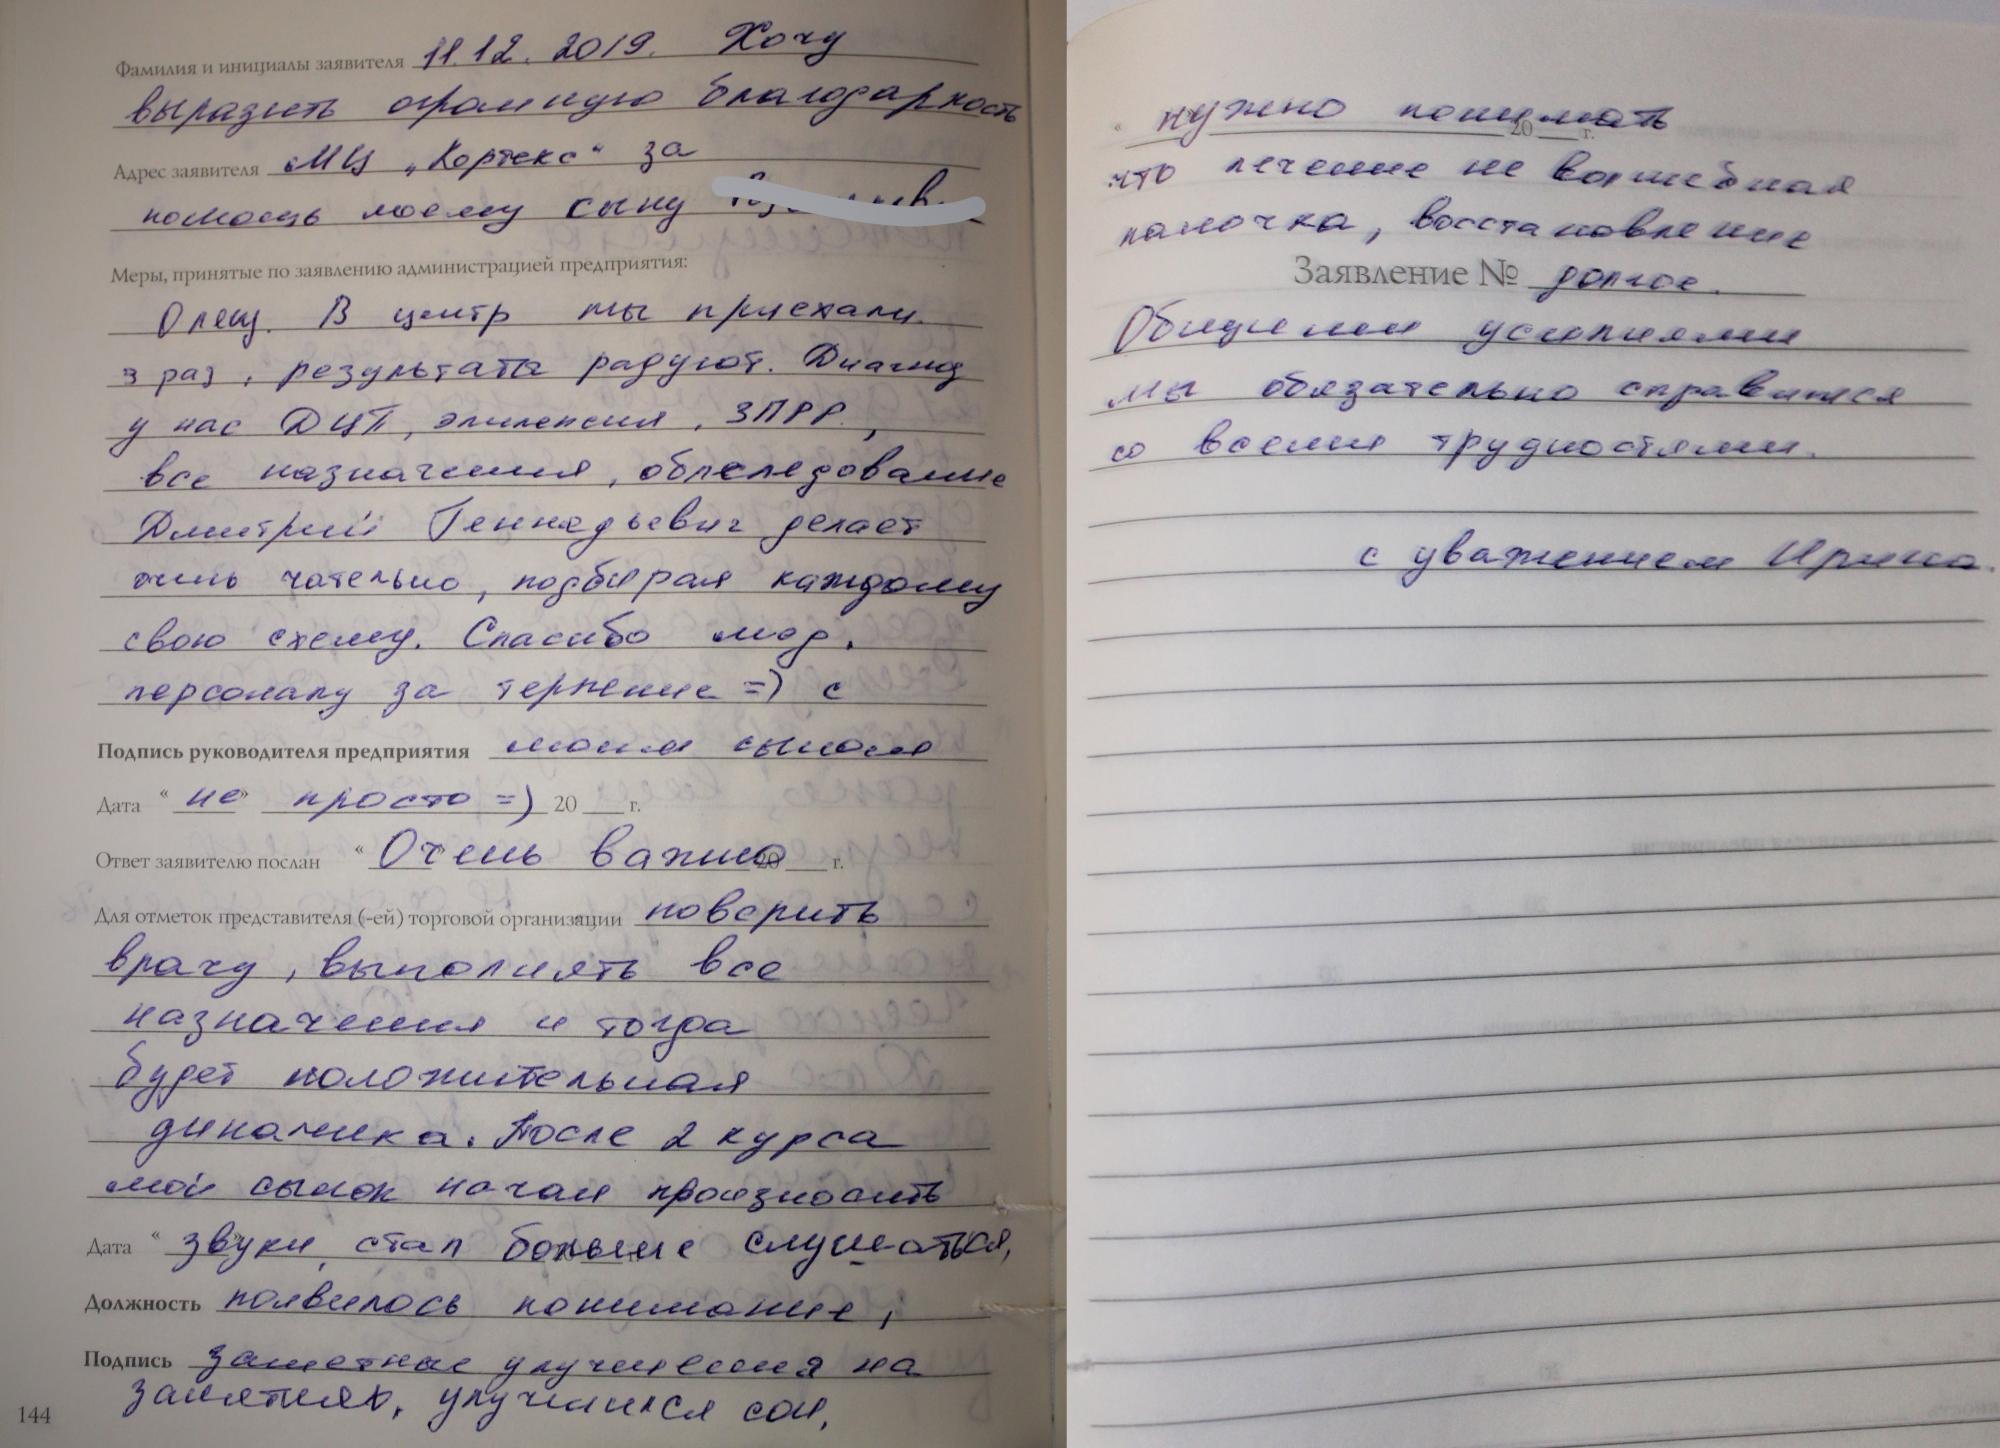 Фамилия и инициалы заявителя 11.12. 2019. Хочу
выразить огромную благодарность
Адрес заявителя МЦ „Кортекс“ за
помощь моему сыну
Меры, принятые по заявлению администрацией предприятия:
Олегу. В центр мы приехали
3 раз, результаты радуют. Диагноз
у нас ДЦП, эпилепсия, ЗПРР,
все назначения, обследование
Дмитрий Геннадьевич делает
очень чательно, подбирая каждому
свою схему. Спасибо мед.
персоналу за терпение =) с
Подпись руководителя предприятия моим сыном
Дата « не » просто =) 20 г.
Ответ заявителю послан « Очень важно 20 г.
Для отметок представителя (-ей) торговой организации поверить
врачу, выполнять все
назначения и тогда
будет положительная
динамика. После 2 курса
мой сынок начал произносить
Дата « звуки, стал больше слушаться,
Должность появилось понимание,
Подпись заметные улучшения на
занятиях, улучшился сон,
144
« нужно понимать 20 г.
что лечение не волшебная
палочка, восстановление
Заявление № долгое.
Общими усилиями
мы обязательно справимся
со всеми трудностями.
с уважением Ирина.